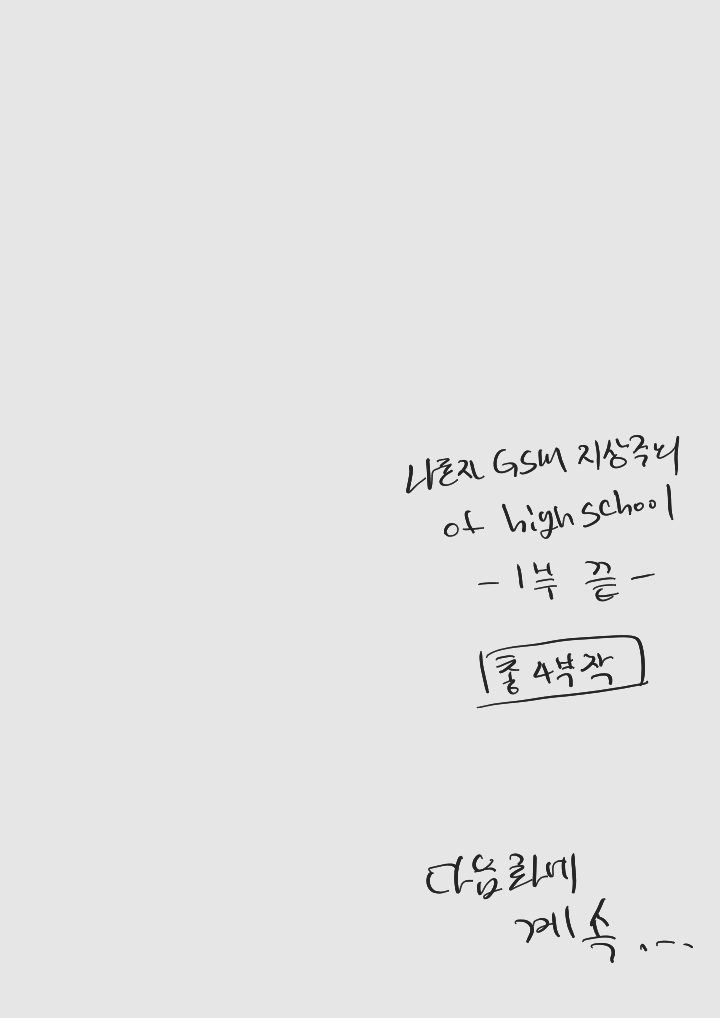 나혼자 GSM 지상주의
of highschool
- 1부 끝 -
총 4부작
다음화에
계속 ....